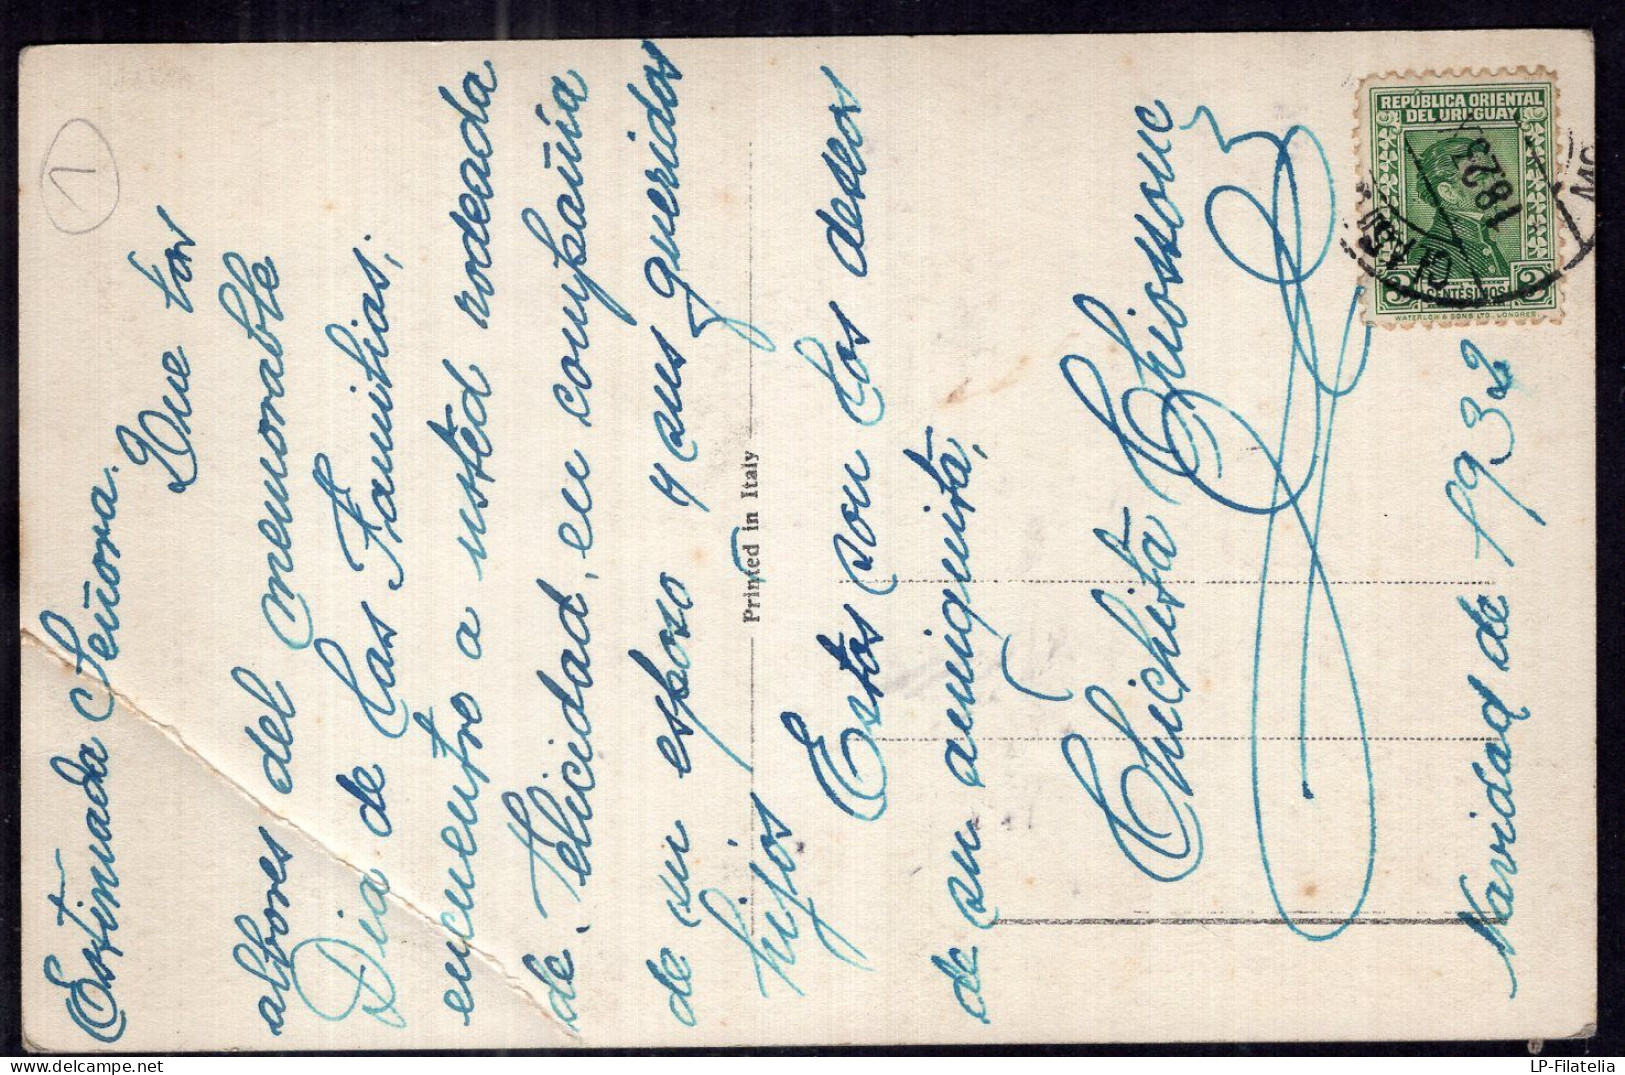 1
Estimada Señora.
Que los
albores del memorable
Dia de las Familias;
encuentre a usted rodeada
de Felicidad, en compañía
de su esposo y sus queridos
hijos
Estos son los deseos
de su amiguita,
Chichita Chiossone
Navidad de 1932
Printed in Italy
REPÚBLICA ORIENTAL
DEL URUGUAY
2 2
CENTÉSIMOS
WATERLOW & SONS LTD., LONDRES.
1823
LP-Filatelia